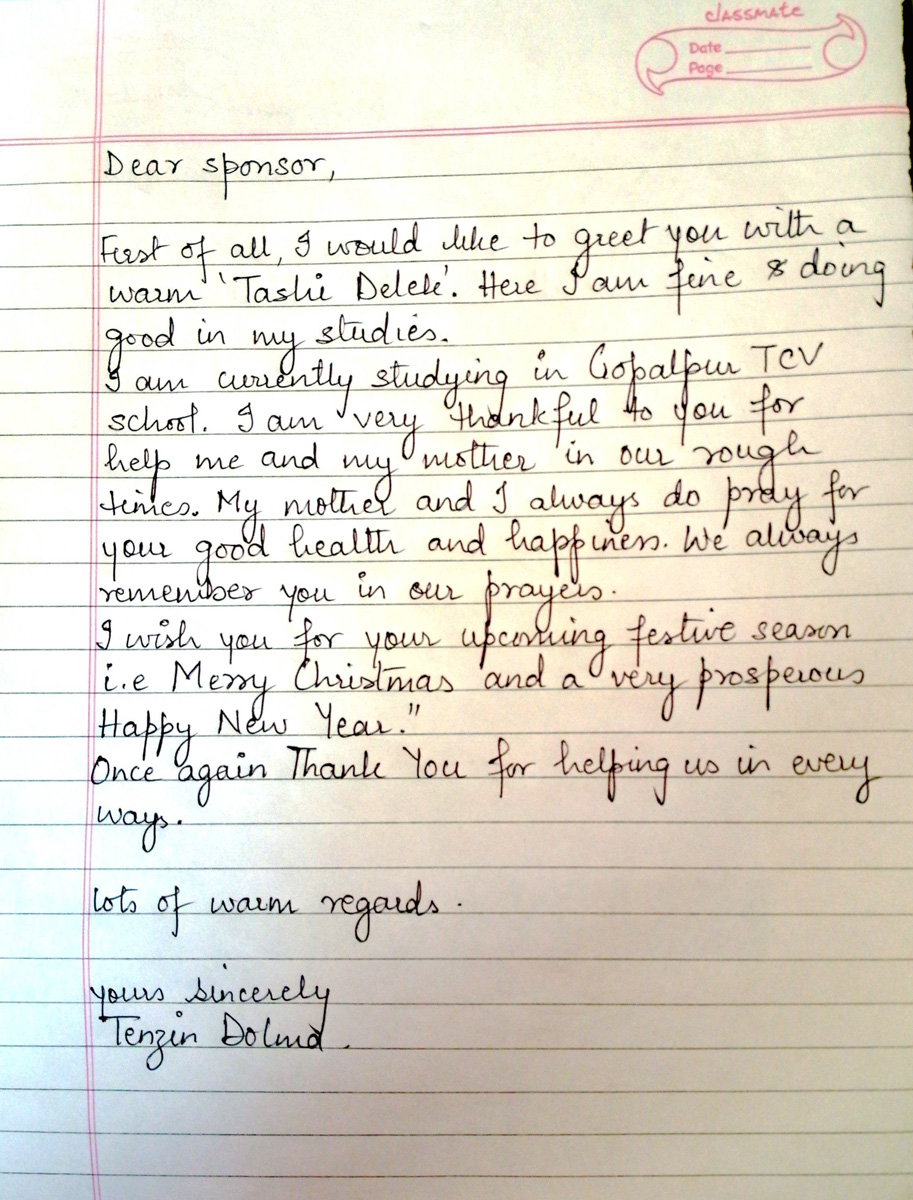 classmate
Date
Page
Dear sponsor,
First of all, I would like to greet you with a
warm 'Tashi Delek'. Here I am fine & doing
good in my studies.
I am currently studying in Gopalpur TCV
school. I am very thankful to you for
help me and my mother in our rough
times. My mother and I always do pray for
your good health and happiness. We always
remember you in our prayers.
I wish you for your upcoming festive season
i.e Merry Christmas and a very prosperous
Happy New Year."
Once again Thank You for helping us in every
ways.
lots of warm regards.
yours sincerely
Tenzin Dolma.